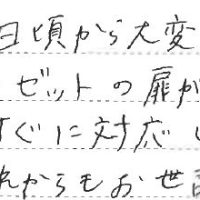 日頃から大変
ゼットの扉が
すぐに対応し
れからもお世話